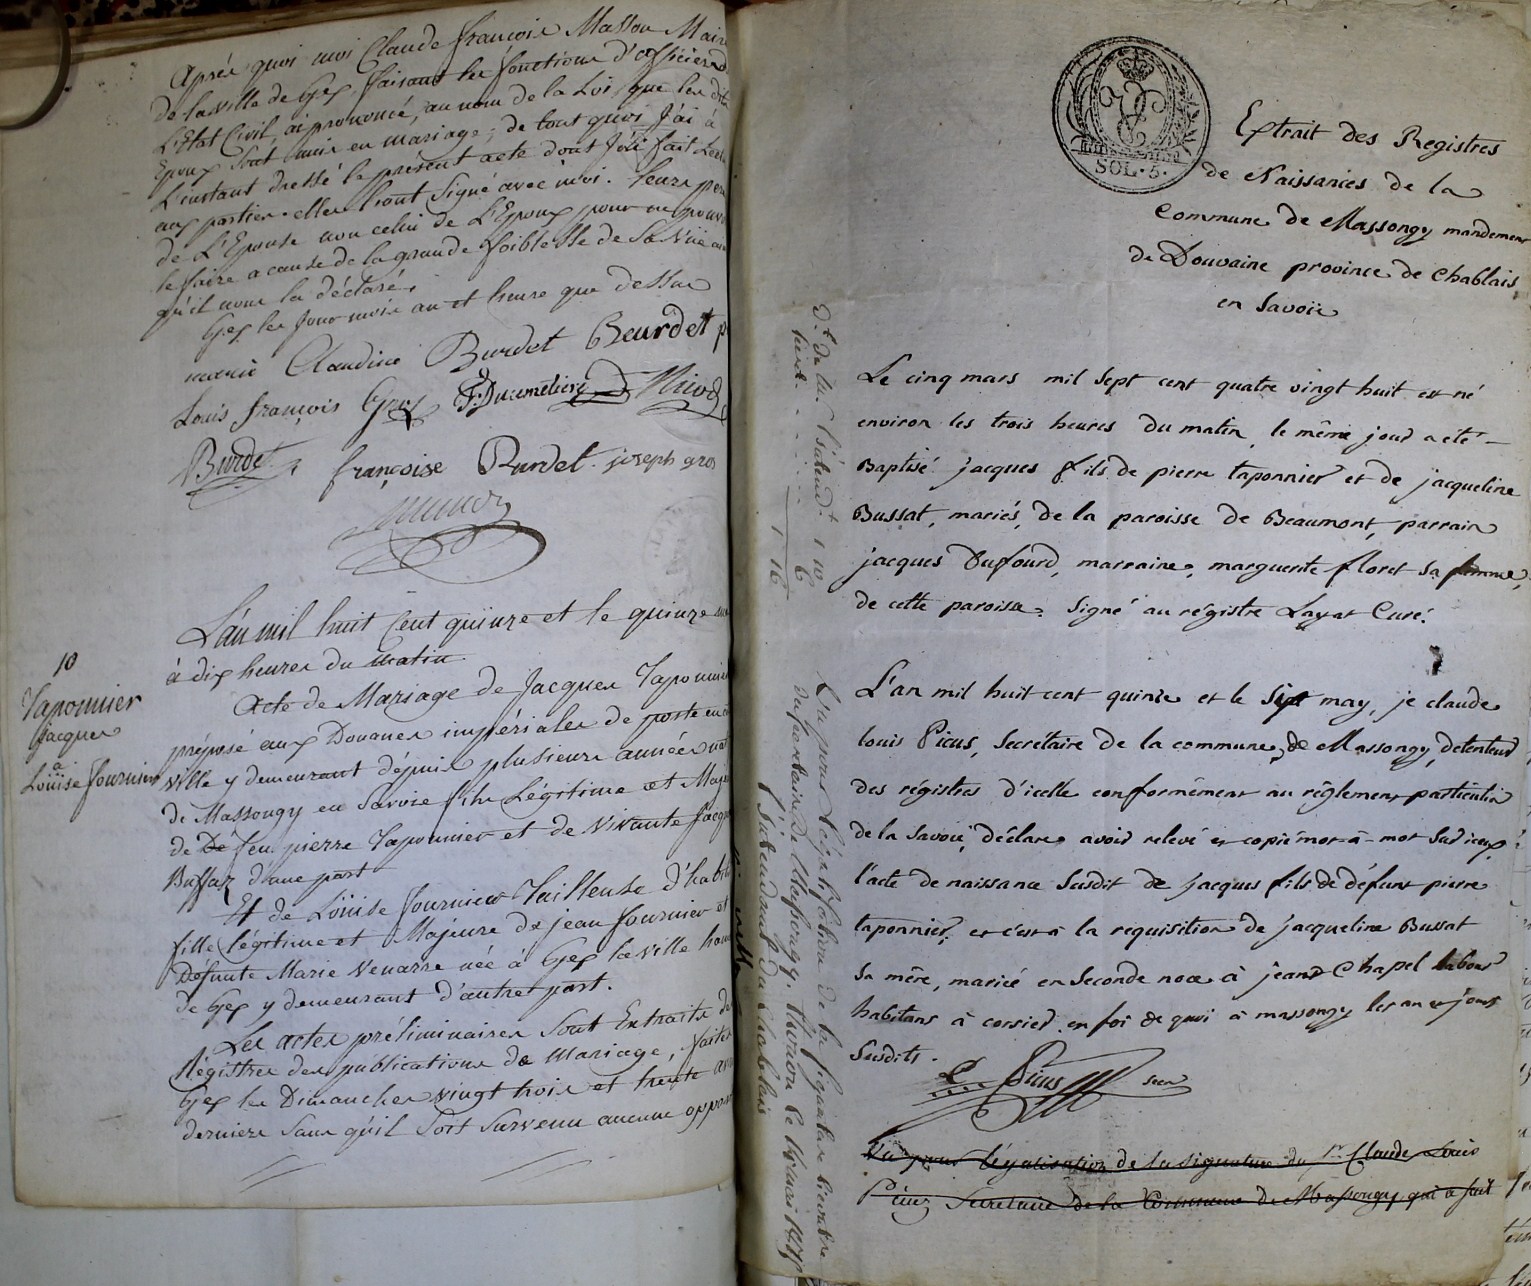 Après quoi moi Claude françois Masson Maire
de la ville de Gex, faisant les fonctions d'officier d
L'Etat Civil, ai prononcé, au nom de la Loi, que les dits
Epoux Sont unis en mariage; de tout quoi J'ai à
L'instant dressé le présent acte dont J'ai fait Lect
aux parties elles l'ont Signé avec moi. leurs per
de L'Epouse non celui de L'Epoux pour ne pouvoi
le faire a cause de la grande foiblesse de Sa Vüe
qu'il nous la déclaré.
Gex les Jour mois an et heure que dessus
marie Claudine Burdet Beurdet p
Louis françois Gros F. Dumélière
Burdet françoise Burdet joseph gros
L'an mil huit Cent quinze et le quinze
à dix heures du matin.
10
Taponnier
Jacques
à
Loüise fournier
Acte de Mariage de Jacques Taponnier
préposé aux Douanes impériales de poste en
ville y demeurant dépuis plusieurs années nat
de Massongy en Savoie fils Légitime et Maje
de De feu pierre Taponnier et de vivante Jacqu
Bussaz d'une part
Et de Loüise fournier Tailleuse d'habits
fille légitime et Majeure de jean fournier et
Défunte Marie Venarre née à Gex la ville
de Gex y demeurant d'autre part.
Les actes préliminaires Sont Extraits de
Régistres des publications de Mariage, faites
Gex les Dimanches vingt trois et trente
derniers Sans qu'il Soit Survenu aucune oppos
SOL. 5.
Extrait des Registres
de Naissances de la
Commune de Massongy mandement
de Douvaine province de Chablais
en Savoie
Le cinq mars mil Sept cent quatre vingt huit est né
environ les trois heures du matin, le même jour a été
Baptisé jacques fils de pierre taponnier et de jacqueline
Bussat, mariés, de la paroisse de Beaumont, parrain
jacques Dufourd, marraine, marguerite floret sa femme,
de cette paroisse. Signé au régistre Layat Curé.
L'an mil huit cent quinze et le Sept may, je claude
louis Picus, Secrétaire de la commune de Massongy, détenteur
des régistres d'icelle conformément au réglement particulier
de la Savoie, déclare avoir relevé et copié mot-à-mot Sur iceux
l'acte de naissance Susdit de Jacques fils de défunt pierre
taponnier, et c'est à la requisition de jacqueline Bussat
Sa mère, mariée en Seconde noce à jean Chapel
habitans à corsier en foi de quoi à massongy les an et jours
Susdits.
Picus Secr
Vu pour Légalisation de la Signature du Sr. Claude Louis
Picus Secretaire de la Commune de Massongy qui a fait
Vu pour Légalisation de la signature
du secretaire de Massongy. Thonon le
l'Intendant du Chablais
1 10
6
1 16